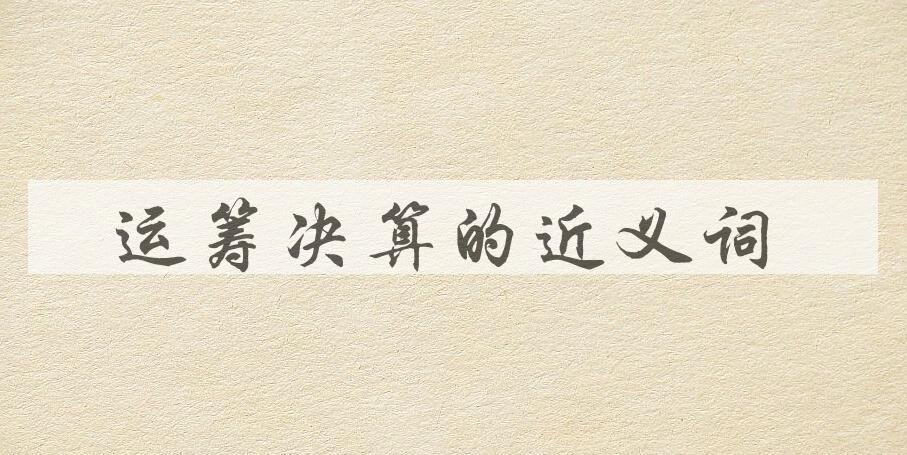 运筹决算的近义词